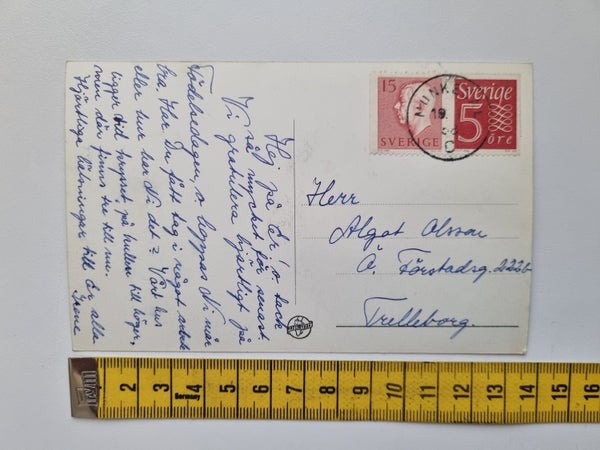 Hej på Er! o. tack
så mycket för senast.
Vi gratulera hjärtligt på
födelsedagen, o. hoppas Ni mår
bra. Har Du fått tag i något
eller hur har Ni det? Vårt hus
ligger vid krysset på kullen till höger,
men där finns tre till nu.
Hjärtliga hälsningar till Er alla
Irene
15
SVERIGE
Sverige
5
öre
19.
Herr
Algot Olsson
Ö. Förstadsg. 222b
Trelleborg.
2 3 4 5 6 7 8 9 10 11 12 13 14 15 16
Germany